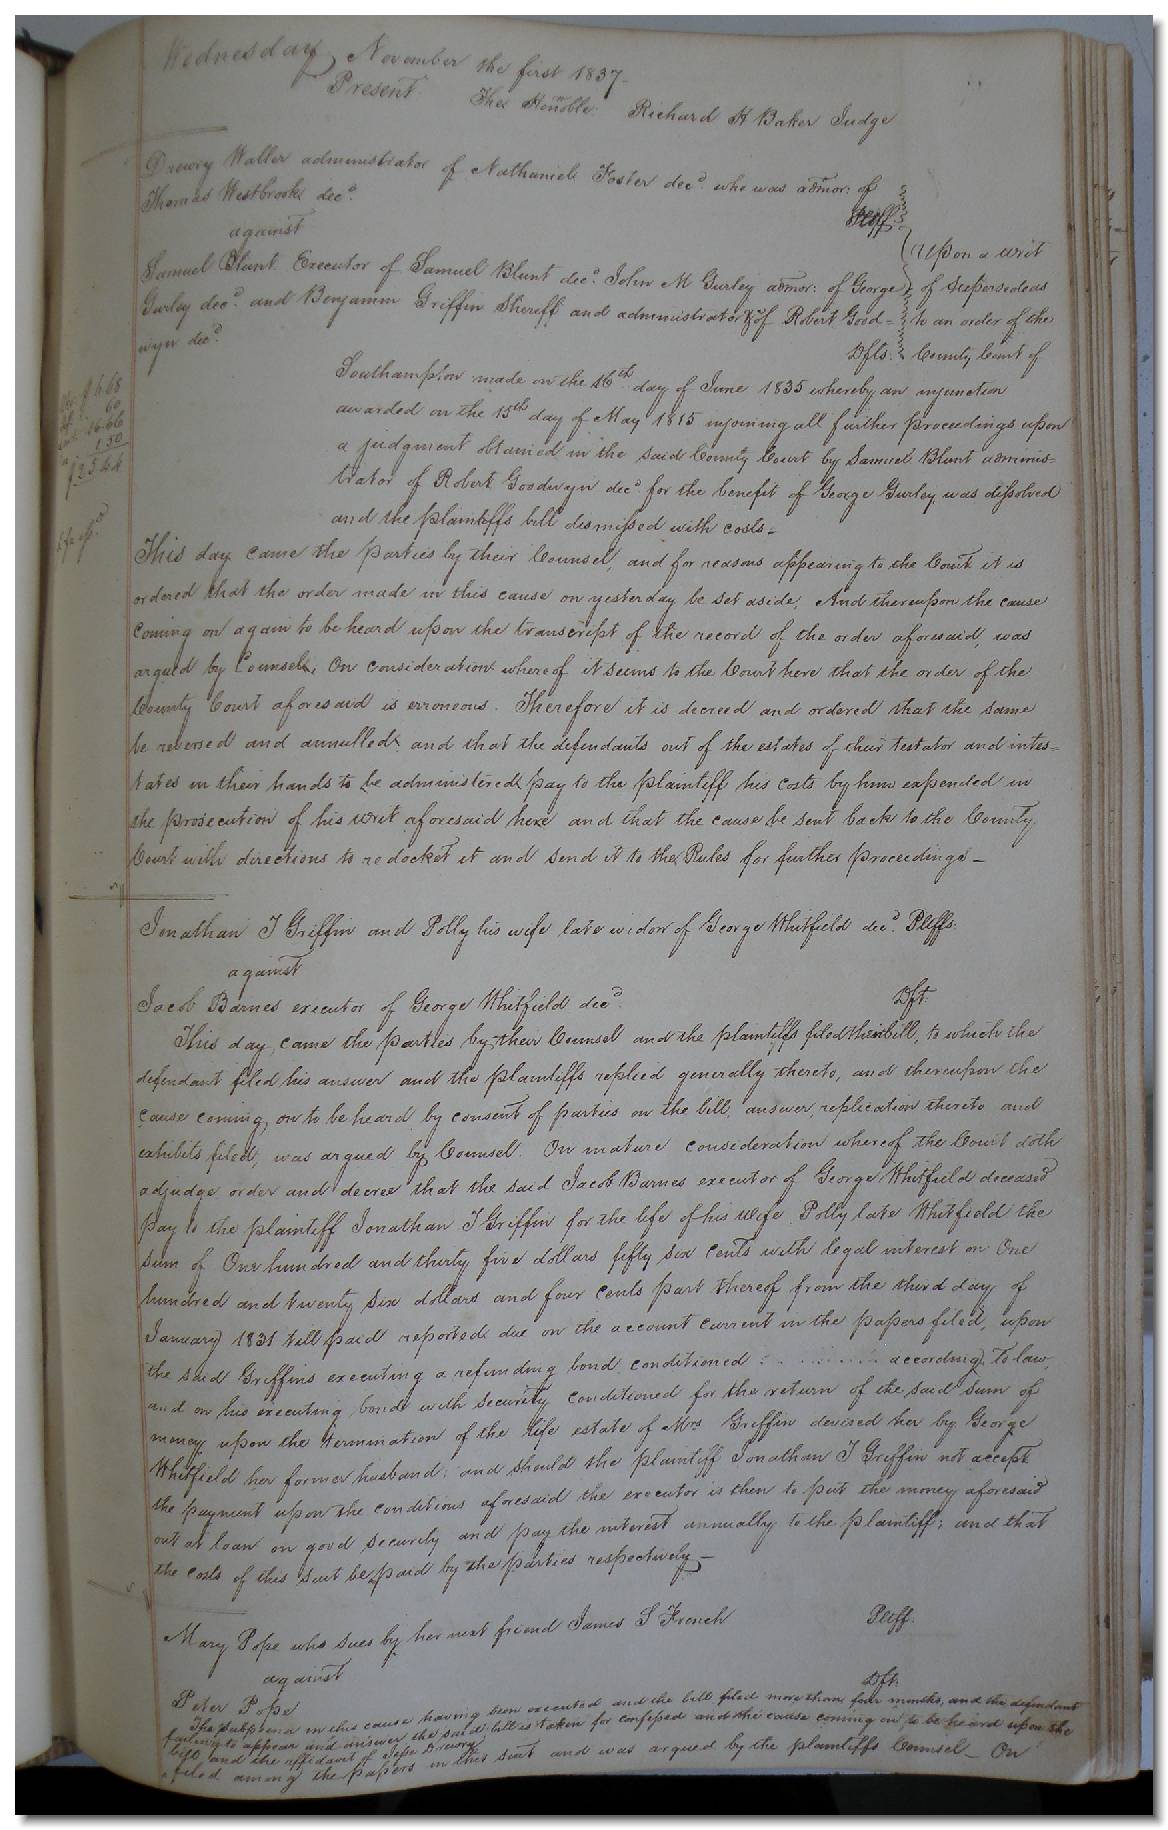 Wednesday November the first 1837
Present The Honoble Richard H Baker Judge
Drewry Waller administrator of Nathaniel Foster decd. who was admor: of
Thomas Westbrook decd.
Pltff.
against
Samuel Blunt Executor of Samuel Blunt decd. John M Gurley admor: of George
Gurley decd. and Benjamin Griffin Sheriff and administrator of Robert Good=
wyn decd.
Dfts.
Upon a writ
of supersedeas
to an order of the
County Court of
Southampton made on the 16th day of June 1835 whereby an injunction
awarded on the 15th day of May 1815 injoining all further proceedings upon
a judgment obtained in the said County Court by Samuel Blunt adminis=
trator of Robert Goodwyn decd. for the benefit of George Gurley was dissolved
and the plaintiffs bill dismissed with costs=
This day came the parties by their Counsel, and for reasons appearing to the Court it is
ordered that the order made in this cause on yesterday be set aside. And thereupon the cause
coming on again to be heard upon the transcript of the record of the order aforesaid, was
argued by Counsel. On consideration whereof it seems to the Court here that the order of the
County Court aforesaid is erroneous. Therefore it is decreed and ordered that the same
be reversed and annulled and that the defendants out of the estates of their testator and intes=
tates in their hands to be administered pay to the plaintiff his costs by him expended in
the prosecution of his writ aforesaid here and that the cause be sent back to the County
Court with directions to re docket it and send it to the Rules for further proceedings—
Jonathan T Griffin and Polly his wife late widow of George Whitfield decd. Pltffs.
against
Jacob Barnes executor of George Whitfield decd. Dft.
This day came the parties by their Counsel and the plaintiffs filed their bill, to which the
defendant filed his answer and the plaintiffs replied generally thereto, and thereupon the
cause coming on to be heard by consent of parties on the bill, answer, replication thereto and
exhibits filed, was argued by Counsel. On mature consideration whereof the Court doth
adjudge order and decree that the said Jacob Barnes executor of George Whitfield deceased
pay to the plaintiff Jonathan T Griffin for the life of his wife Polly late Whitfield the
sum of One hundred and thirty five dollars fifty six cents with legal interest on One
hundred and twenty six dollars and four cents part thereof from the third day of
January 1831 till paid reported due on the account current in the papers filed, upon
the said Griffins executing a refunding bond conditioned according to law,
and on his executing bond with security conditioned for the return of the said sum of
money upon the termination of the life estate of Mrs Griffin devised her by George
Whitfield her former husband; and should the plaintiff Jonathan T Griffin not accept
the payment upon the conditions aforesaid the executor is then to put the money aforesaid
out at loan on good security and pay the interest annually to the plaintiff; and that
the costs of this suit be paid by the parties respectively—
Mary Pope who sues by her next friend James S French Pltff.
against
Peter Pope Dft.
The subpoena in this cause having been executed and the bill filed more than four months, and the defendant
failing to appear and answer the said bill is taken for confessed and the cause coming on to be heard upon the
bill and the affidavit of Jesse Drewry
filed among the papers in this suit and was argued by the plaintiffs Counsel— On